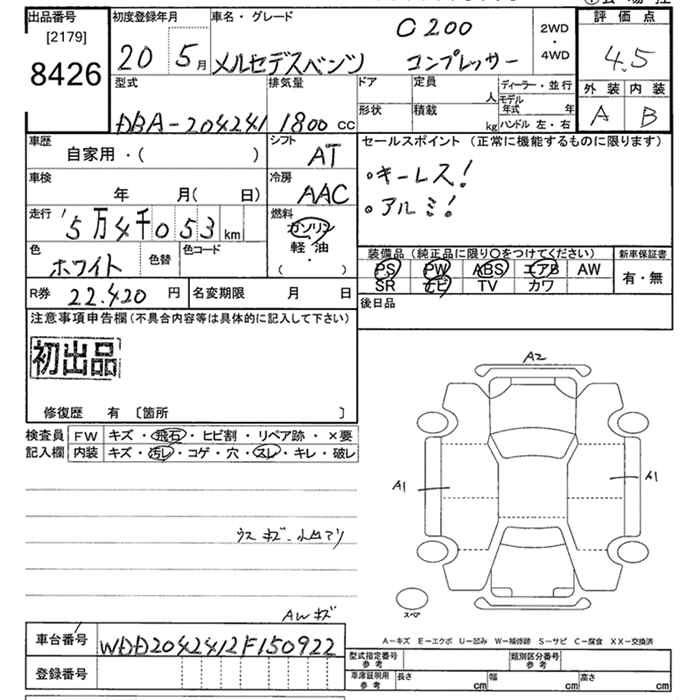 出品番号
[2179]
8426
初度登録年月
20 5月
車名・グレード
C200
メルセデスベンツ コンプレッサー
2WD
・
4WD
評価点
4.5
外装 内装
A B
型式
DBA-204241
排気量
1800 cc
ドア
定員 人
形状
積載 kg
ディーラー・並行
モデル年式 年
ハンドル 左・右
車歴
自家用・( )
シフト
AT
車検
年 月(日)
冷房
AAC
走行
'5万4千053km
燃料
ガソリン
軽・油
( ・ )
色
ホワイト
色替
色コード
R券 22.420 円
名変期限 月 日
セールスポイント (正常に機能するものに限ります)
・キーレス!
・アルミ!
装備品 (純正品に限り〇をつけてください)
PS PW ABS エアB AW
SR ナビ TV カワ
新車保証書
有・無
後日品
注意事項申告欄(不具合内容等は具体的に記入して下さい)
初出品
修復歴 有 〔箇所 〕
検査員
記入欄
FW キズ・飛石・ヒビ割・リペア跡・×要
内装 キズ・汚レ・コゲ・穴・スレ・キレ・破レ
ウスキズ・小凹アリ
AWキズ
A2
A1
A1
スペア
A-キズ E-エクボ U-凹み W-補修跡 S-サビ C-腐食 XX-交換済
車台番号 WDD2042412F150922
登録番号
型式指定番号
参考
類別区分番号
参考
車庫証明用
参考
長さ cm 幅 cm 高さ cm